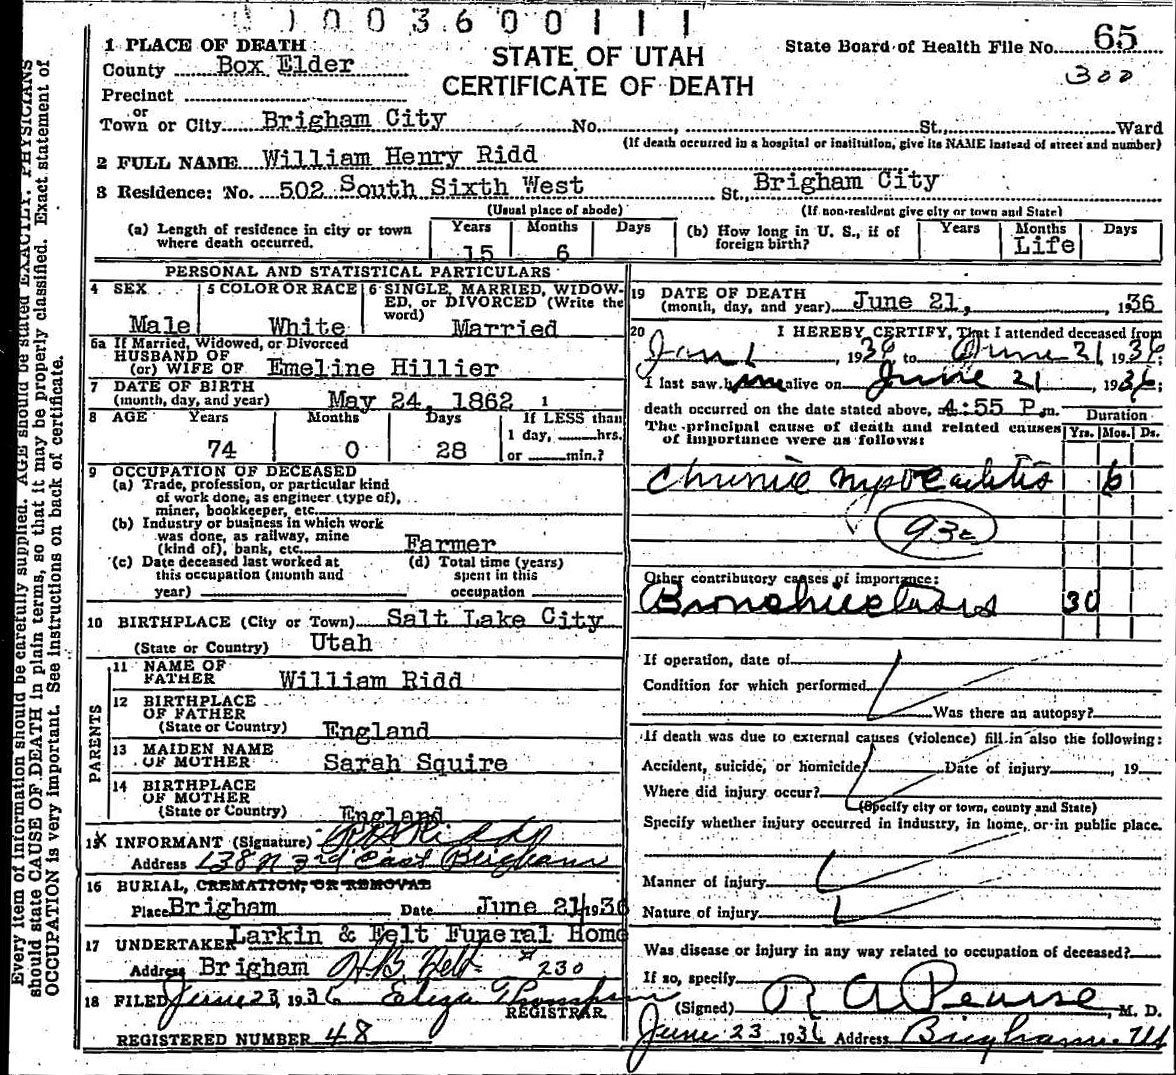 0003600111
1 PLACE OF DEATH
County Box Elder
Precinct
or
Town or City Brigham City No. , St., Ward
STATE OF UTAH
CERTIFICATE OF DEATH
State Board of Health File No. 65
300
(If death occurred in a hospital or institution, give its NAME instead of street and number)
2 FULL NAME William Henry Ridd
3 Residence: No. 502 South Sixth West St., Brigham City
(Usual place of abode) (If non-resident give city or town and State)
(a) Length of residence in city or town where death occurred. Years 15 Months 6 Days
(b) How long in U. S., if of foreign birth? Years Months Days Life
PERSONAL AND STATISTICAL PARTICULARS
4 SEX Male
5 COLOR OR RACE White
6 SINGLE, MARRIED, WIDOWED, or DIVORCED (Write the word) Married
6a If Married, Widowed, or Divorced
HUSBAND OF
(or) WIFE OF Emeline Hillier
7 DATE OF BIRTH
(month, day, and year) May 24, 1862 1
8 AGE Years Months Days If LESS than
74 0 28 1 day, hrs.
or min.?
9 OCCUPATION OF DECEASED
(a) Trade, profession, or particular kind
of work done, as engineer (type of),
miner, bookkeeper, etc.
(b) Industry or business in which work
was done, as railway, mine
(kind of), bank, etc. Farmer
(c) Date deceased last worked at
this occupation (month and
year)
(d) Total time (years)
spent in this
occupation
10 BIRTHPLACE (City or Town) Salt Lake City
(State or Country) Utah
PARENTS
11 NAME OF
FATHER William Ridd
12 BIRTHPLACE
OF FATHER
(State or Country) England
13 MAIDEN NAME
OF MOTHER Sarah Squire
14 BIRTHPLACE
OF MOTHER
(State or Country) England
15 X INFORMANT (Signature) Ridd
Address 138 N 3rd East Brigham
16 BURIAL, CREMATION, OR REMOVAL
Place Brigham Date June 21/1936
17 UNDERTAKER Larkin & Felt Funeral Home
Address Brigham H.B. Felt # 230
18 FILED June 23, 1936 Eliza Thompson
REGISTRAR.
REGISTERED NUMBER 48
19 DATE OF DEATH
(month, day, and year) June 21, 1936
20 I HEREBY CERTIFY, That I attended deceased from
Jan 1, 1936 to June 21 1936;
I last saw him alive on June 21, 1936;
death occurred on the date stated above, 4:55 P.m.
The principal cause of death and related causes
of importance were as follows:
Duration
Yrs. Mos. Ds.
Chronic Myocarditis 6
93c
Other contributory causes of importance:
Bronchiectasis 30
If operation, date of
Condition for which performed
Was there an autopsy?
If death was due to external causes (violence) fill in also the following:
Accident, suicide, or homicide? Date of injury , 19
Where did injury occur?
(Specify city or town, county and State)
Specify whether injury occurred in industry, in home, or in public place.
Manner of injury
Nature of injury
Was disease or injury in any way related to occupation of deceased?
If so, specify
(Signed) R A Pearse, M. D.
June 23 1936 Address Brigham Ut
Every item of information should be carefully supplied. AGE should be stated EXACTLY. PHYSICIANS
should state CAUSE OF DEATH in plain terms, so that it may be properly classified. Exact statement of
OCCUPATION is very important. See instructions on back of certificate.